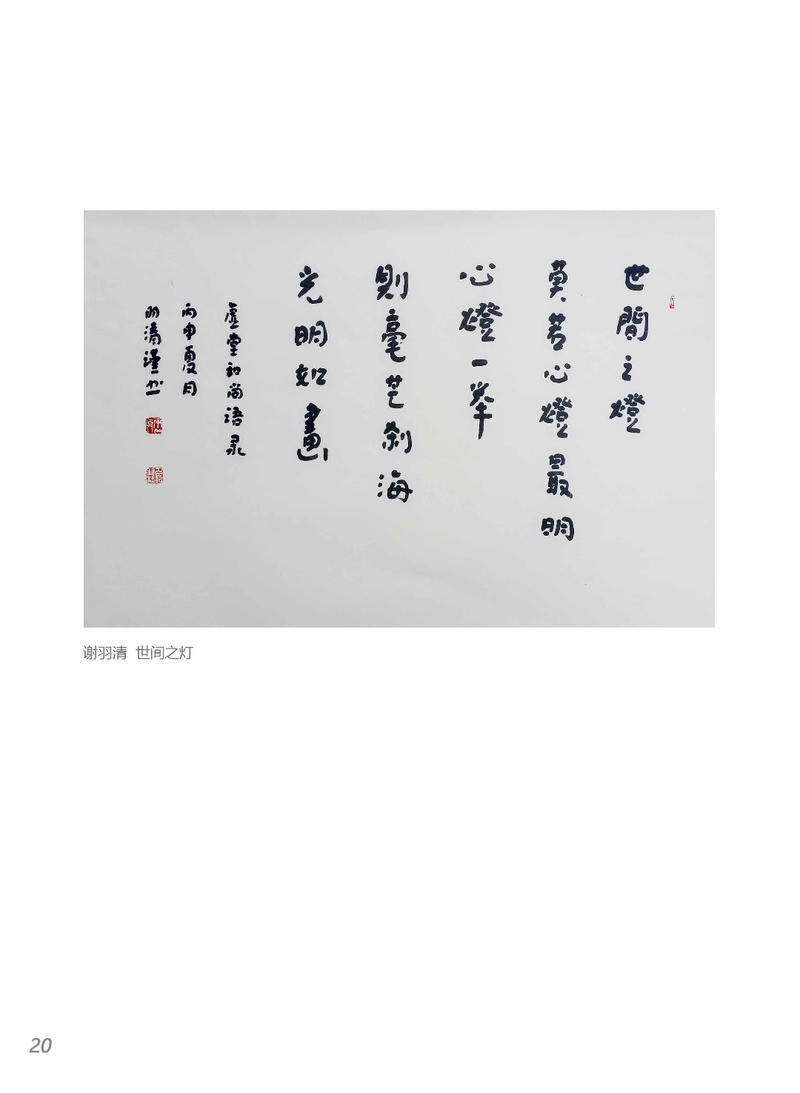 世間之燈
莫若心燈最明
心燈一举
則毫芒刹海
光明如畫
虛堂和尚语录
丙申夏月
羽清謹书
谢羽清 世间之灯
20